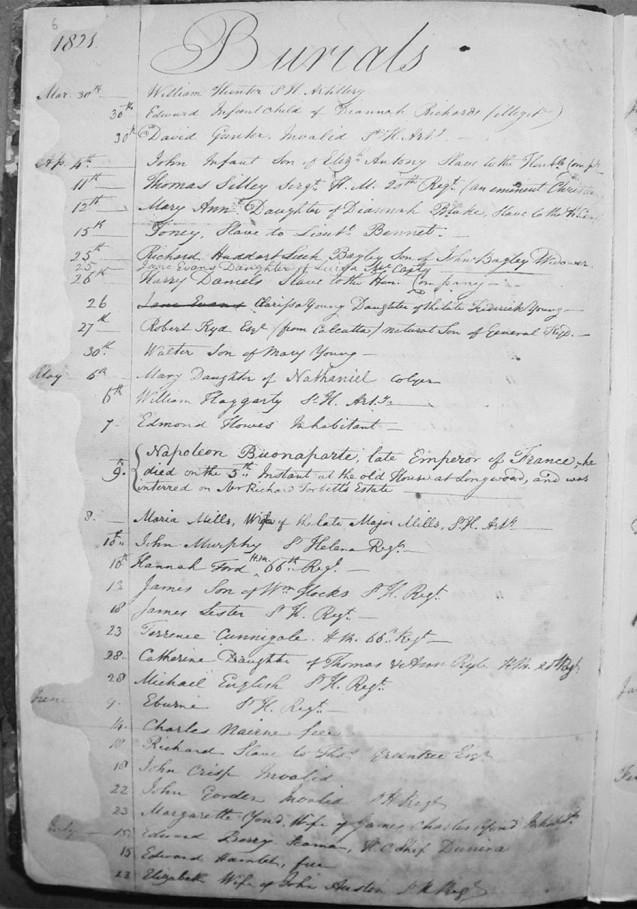 6
1821. Burials
Mar. 30th William Hunter St H. Artillery
30th Edward Infant Child of Deannah Richards (illegt)
30th David Gunter, Invalid St H. Arty
Ap. 4th John Infant Son of Elizh Antony Slave to the Honble Comp
11th Thomas Silley Sergt H. M. 20th Regt (an eminent Christian
12th Mary Ann Daughter of Diannah Blake, Slave to the H.
15th Toney, Slave to Lieut Bennet
25th Richard Huddart Leech Bagley Son of John Bagley Widower
25 Jane Evans Daughter of
26th Harry Daniels Slave to the Hon. Company
26 Jane Evans Clarissa Young Daughter of the late Frederick Young
27th Robert Kyd Esqr (from Calcutta) natural Son of General Kyd.
30th Walter Son of Mary Young
May 6th Mary Daughter of Nathaniel Colyer
6th William Haggarty St. H. Arty.
7. Edmond Howes Inhabitant
9th Napoleon Buonaparte, late Emperor of France, he
died on the 5th Instant at the old House at Longwood, and was
interred on Mr Richard Torbett's Estate
8. Maria Mills, Wife of the late Major Mills, St. H. Arty
10th John Murphy St Helena Regt
10th Hannah Ford H.M. 66th Regt
13 James Son of Wm Hocks St H. Regt
18 James Lester St H. Regt
23 Terrence Cunnigale H.M. 66th Regt
28. Catherine Daughter of Thomas & Ann Ryle H.M. 20th Regt
28 Michael English St H. Regt
June 9. Eburne St H. Regt
14. Charles Nairne free
18 Richard Slave to Thos Greentree Esqr
18 John Crisp Invalid
22 John Invalid St H Regt
23 Margarette Wife of James Charles
July 15 Edward Berry Seaman, H. C. Ship Dunira
15 Edward Hamblet, free
23 Elizabeth Wife of John Austin St H Regt